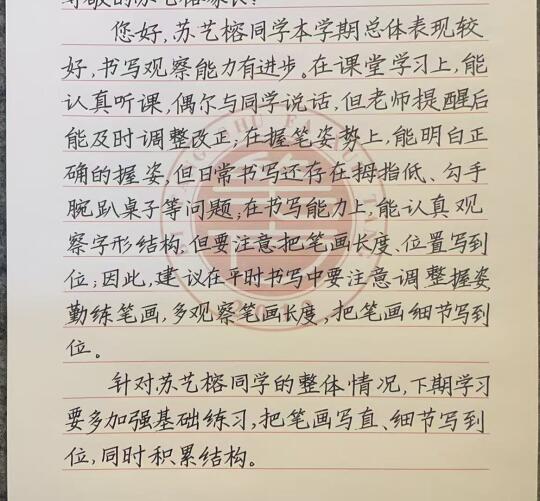 尊敬的苏艺榕家长:
您好,苏艺榕同学本学期总体表现较
好,书写观察能力有进步。在课堂学习上,能
认真听课,偶尔与同学说话,但老师提醒后
能及时调整改正;在握笔姿势上,能明白正
确的握姿,但日常书写还存在拇指低、勾手
腕趴桌子等问题;在书写能力上,能认真观
察字形结构,但要注意把笔画长度、位置写到
位;因此,建议在平时书写中要注意调整握姿
勤练笔画,多观察笔画长度,把笔画细节写到
位。
针对苏艺榕同学的整体情况,下期学习
要多加强基础练习,把笔画写直、细节写到
位,同时积累结构。